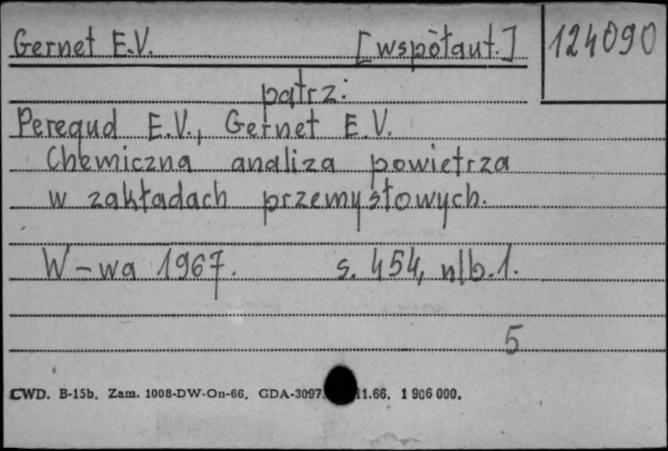 Gernet E.V. [współaut.] 124090
patrz:
Peregud E.V., Gernet E.V.
Chemiczna analiza powietrza
w zakładach przemysłowych.
W-wa 1967. s. 454, nlb.1.
5
CWD. B-15b. Zam. 1008-DW-On-66. GDA-3097. 11.66. 1 906 000.